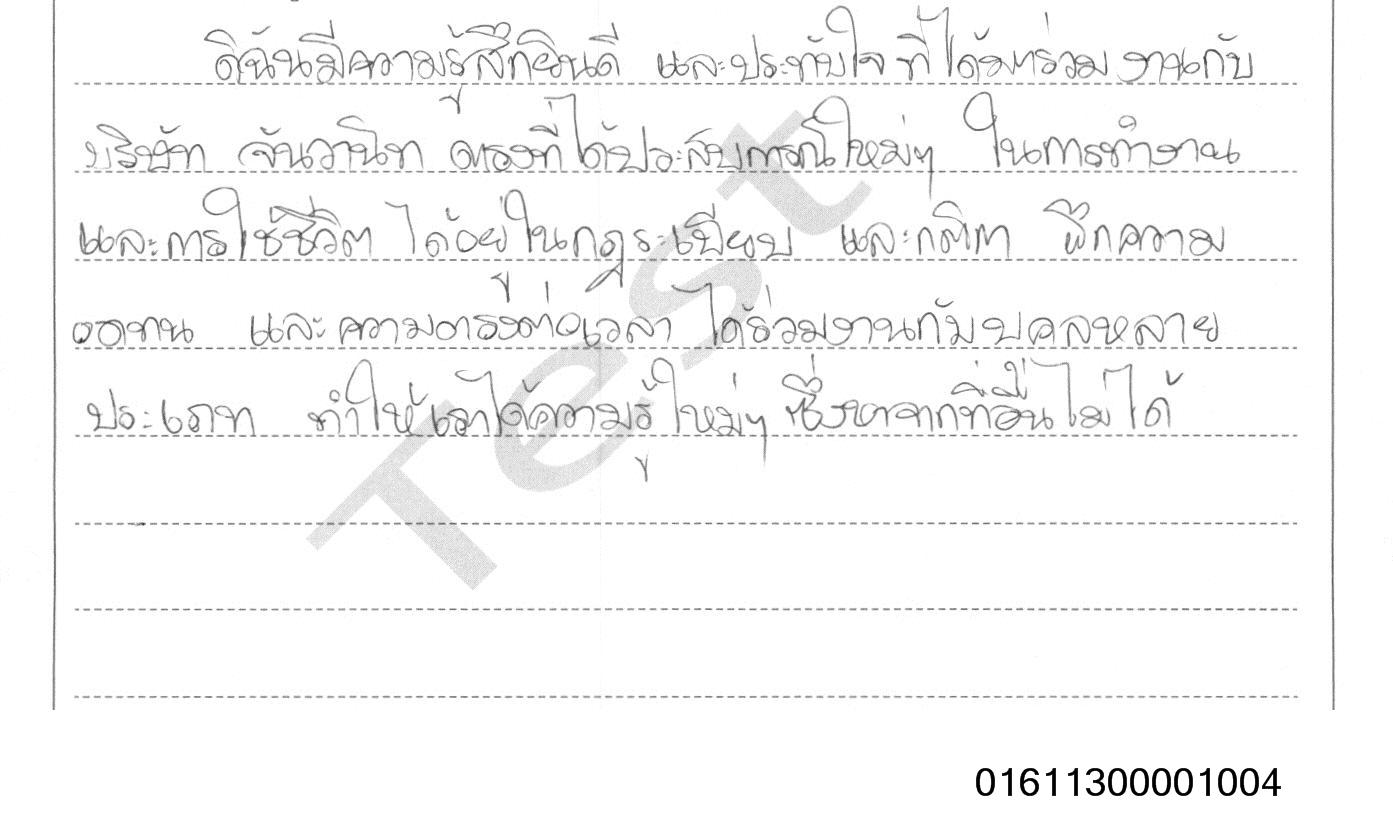 ดิฉันมีความรู้สึกยินดี และประทับใจ ที่ได้มาร่วม งานกับ
บริษัท จันวานิท ตรงที่ได้ประสบการณ์ใหม่ๆ ในการทำงาน
และการใช้ชีวิต ได้อยู่ในกฎระเบียบ และกติกา ฝึกความ
อดทน และความตรงต่อเวลา ได้ร่วมงานกับบุคคลหลาย
ประเภท ทำให้เราได้ความรู้ใหม่ๆ ซึ่งหาจากที่อื่นไม่ได้
Test
01611300001004